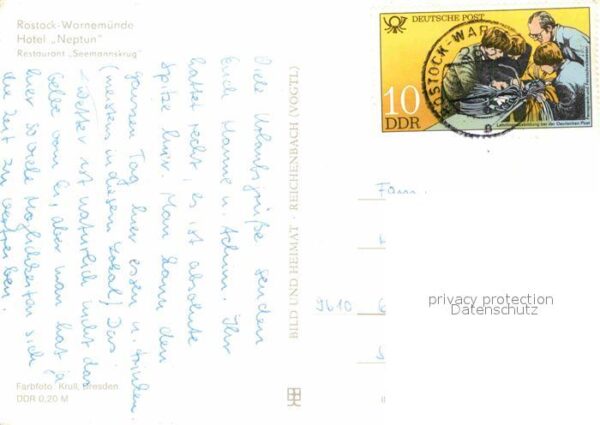 Rostock-Warnemünde
Hotel „Neptun"
Restaurant „Seemannskrug"
Viele Urlaubsgrüße senden
Euch Manne u. Achim. Ihr
hattet recht, es ist absolute
Spitze hier. Man kann den
ganzen Tag hier essen u. trinken
(meistens in diesem Lokal) Das
Wetter ist natürlich nicht das
Gelbe vom Ei, aber man hat ja
hier so viele Möglichkeiten sich
die Zeit zu vertreiben.
Farbfoto Krull, Dresden
DDR 0,20 M
BILD UND HEIMAT REICHENBACH (VOGTL)
DEUTSCHE POST
10
DDR
Lehrlingsausbildung bei der Deutschen Post
ROSTOCK-WAR
B
Fam.
9610
privacy protection
Datenschutz